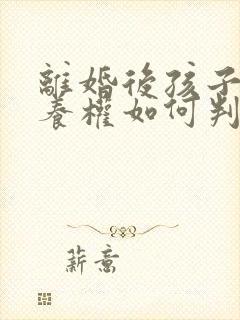 離婚後孩子
養權如何判
薪意